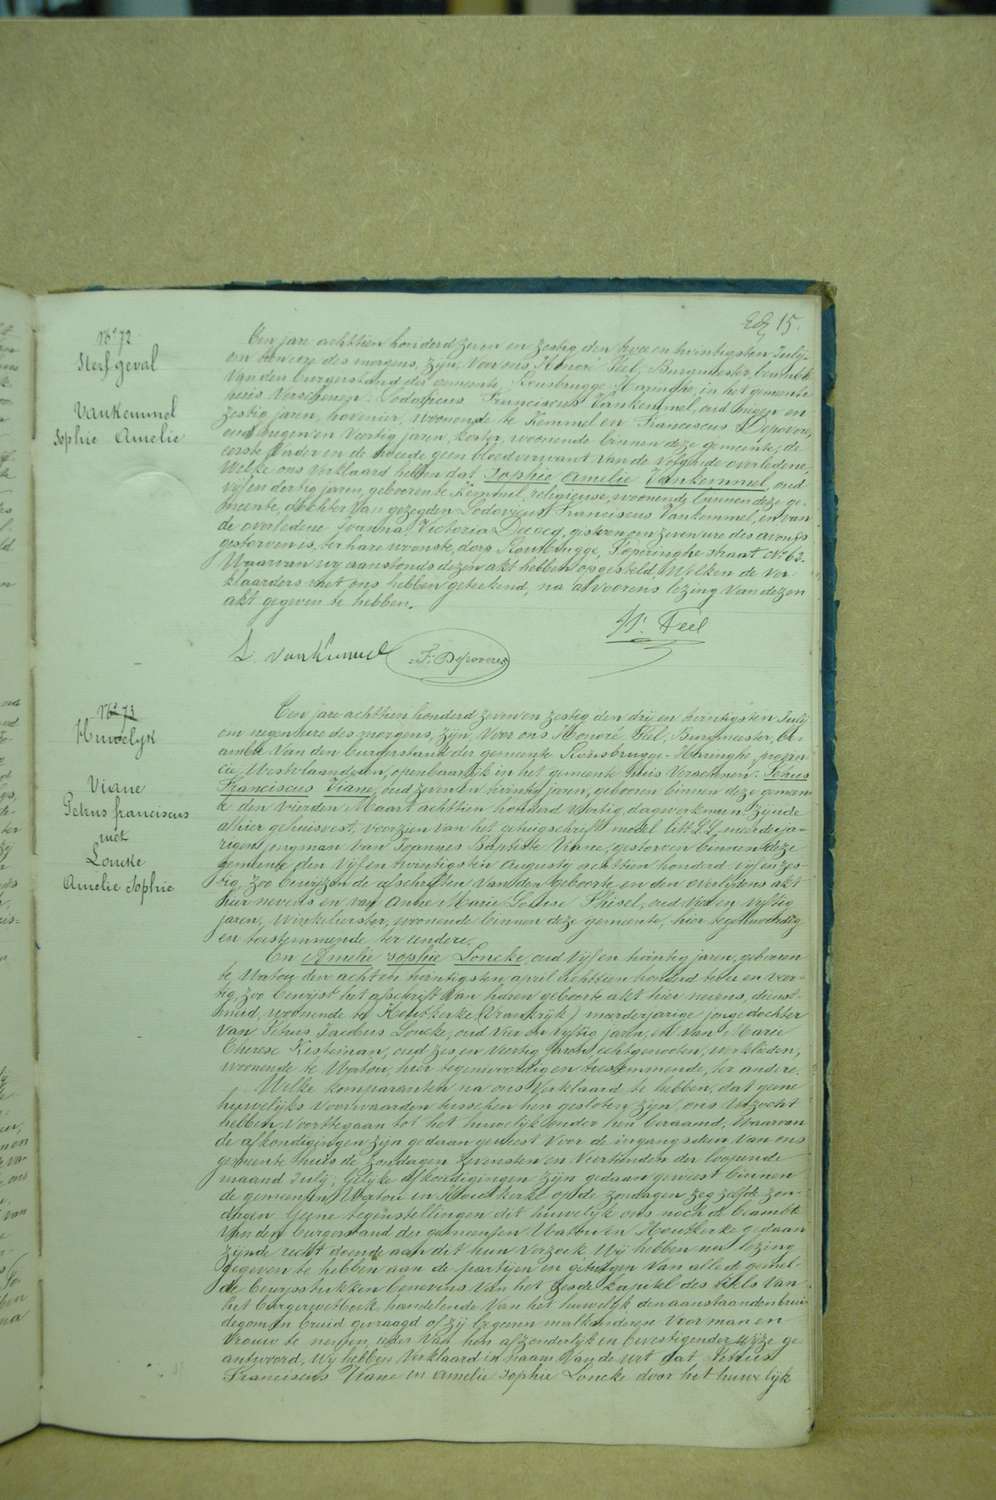 15.
No 72
Sterfgeval
Vankemmel
Sophie Amelie
Ten jare achttien honderd zeven en zestig den twee en twintigsten July,
om tien ure des morgens, zijn, voor ons Honoré Feel, Burgmeester, beambte
van den burgerstand der gemeente Rousbrugge-Haringhe, in het gemeente
huis verschenen: Lodovicus Franciscus Vankemmel, oud negen en
zestig jaren, hovenier, wonende te Kemmel en Franciscus Desovere,
oud negen en veertig jaren, koster, woonende binnen deze gemeente, de
eerste vader en de tweede geen bloedverwant van de volgende overledene,
Welke ons verklaard hebben dat Sophie Amelie Vankemmel, oud
vijf en dertig jaren, geboren te Kemmel, religieuse, wonende binnen deze ge-
meente, dochter van gezegden Lodovicus Franciscus Vankemmel, en van
de overledene Joanna Victoria Decocq, gisteren om zeven ure des avonds
gestorven is, ter hare woonste, dorp Rousbrugge, Poperinghe straat No 63.
Waarvan wy aanstonds dezen akt hebben opgesteld, Welken de ver
klaarders met ons hebben geteekend, na alvoorens lezing van dezen
akt gegeven te hebben.
H. Feel
L. vanKemmel F. Desoveres
No 73
Huwelyk
Viane
Petrus franciscus
met
Loncke
Amelie Sophie
Ten jare achttien honderd zeven en zestig den drij en twintigsten July
om negen ure des morgens, zijn, voor ons Honoré Feel, Burgmeester, be-
ambte van den burgerstand der gemeente Rousbrugge-Haringhe, provin-
cie Westvlaanderen, openbaarlijk in het gemeente huis verschenen: Petrus
Franciscus Viane, oud zeven en twintig jaren, geboren binnen deze gemeen-
te den vierden Maart achttien honderd veertig, dagwerkman zijnde
alhier gehuisvest, voorzien van het getuigschrift model litt. LL, meerderja-
rigen jongman van Joannes Baptiste Viane, gestorven binnen deze
gemeente den vijf en twintigsten augusty achttien honderd vijf en zes-
tig, zoo bewijzen de afschriften van den geboorte en den overlijdens akt
hier nevens en van Anne Marie Louise Thisel, oud zes en vijftig
jaren, Winkelierster, wonende binnen deze gemeente, hier tegenwoordig
en toestemmende ter eendere.
En Amelie Sophie Loncke, oud vijf en twintig jaren, geboren
te Watou den acht en twintigsten april achttien honderd twee en veer-
tig, zoo bewijst het afschrift van haren geboorte akt hier nevens, dienst-
meid, wonende te Houtkerke (Vrankrijk) meerderjarige jonge dochter
van Petrus Jacobus Loncke, oud vier en vijftig jaren, en van Marie
Therese Kesteman, oud zes en veertig jaren, echtgenooten, werklieden,
wonende te Watou, hier tegenwoordig en toestemmende, ter andere.
Welke komparanten na ons verklaard te hebben, dat geene
huwelijks voorwaarden tusschen hen gesloten zijn, ons verzocht
hebben voorttegaan tot het huwelijk onder hen beraamd, Waarvan
de afkondigingen zijn gedaan geweest voor de ingangsdeur van ons
gemeente huis de zondagen zevensten en veertienden der loopende
maand July; Gelijke afkondigingen zijn gedaan geweest binnen
de gemeenten Watou en Houtkerke op de zondagen zeg zelfde zon-
dagen. Geene tegenstellingen dit huwelijk ons noch de beambte
van den burgerstand der gemeenten Watou en Houtkerke gedaan
zijnde recht doende aan dit hun verzoek Wij hebben na lezing
gegeven te hebben aan de partijen en getuigen van alle de gemel-
de bewijsstukken benevens van het zesde kapittel des titels van
het burgerwetboek handelende van het huwelijk, den aanstaanden brui
degom en bruid gevraagd of zij begeren malkanderen voor man en
vrouw te nemen, ieder van hen afzonderlijk en bevestigender wijze ge
antwoord, Wij hebben verklaard in naam van de wet dat, Petrus
Franciscus Viane en Amelie Sophie Loncke door het huwelijk